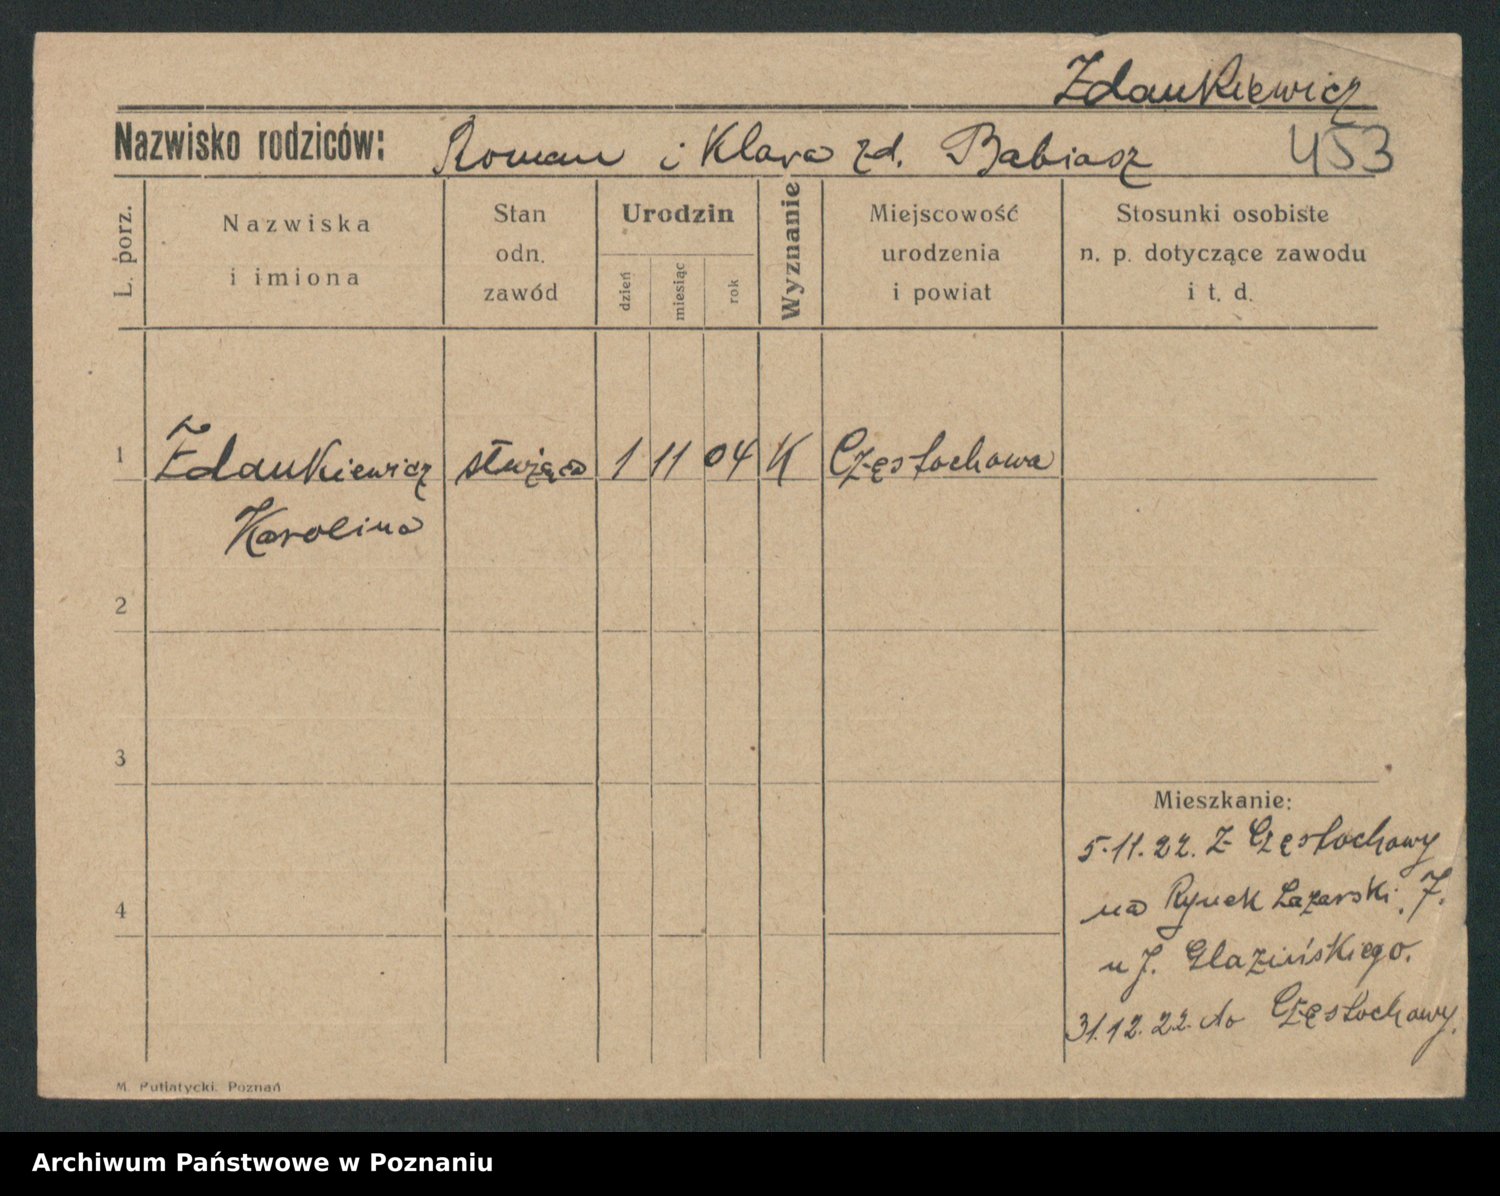 Zdankiewicz
Nazwisko rodziców: Roman i Klara zd. Babiasz 453
L. porz.
Nazwiska
i imiona
Stan
odn.
zawód
Urodzin
dzień
miesiąc
rok
Wyznanie
Miejscowość
urodzenia
i powiat
Stosunki osobiste
n. p. dotyczące zawodu
i t. d.
1 Zdankiewicz służąca 1 11 04 K Częstochowa
Karolina
2
3
Mieszkanie:
5.11.22. z Częstochowy
4
na Rynek Łazarski. 7.
u J. Glazińskiego.
31.12.22. do Częstochowy.
M. Putiatycki. Poznań
Archiwum Państwowe w Poznaniu